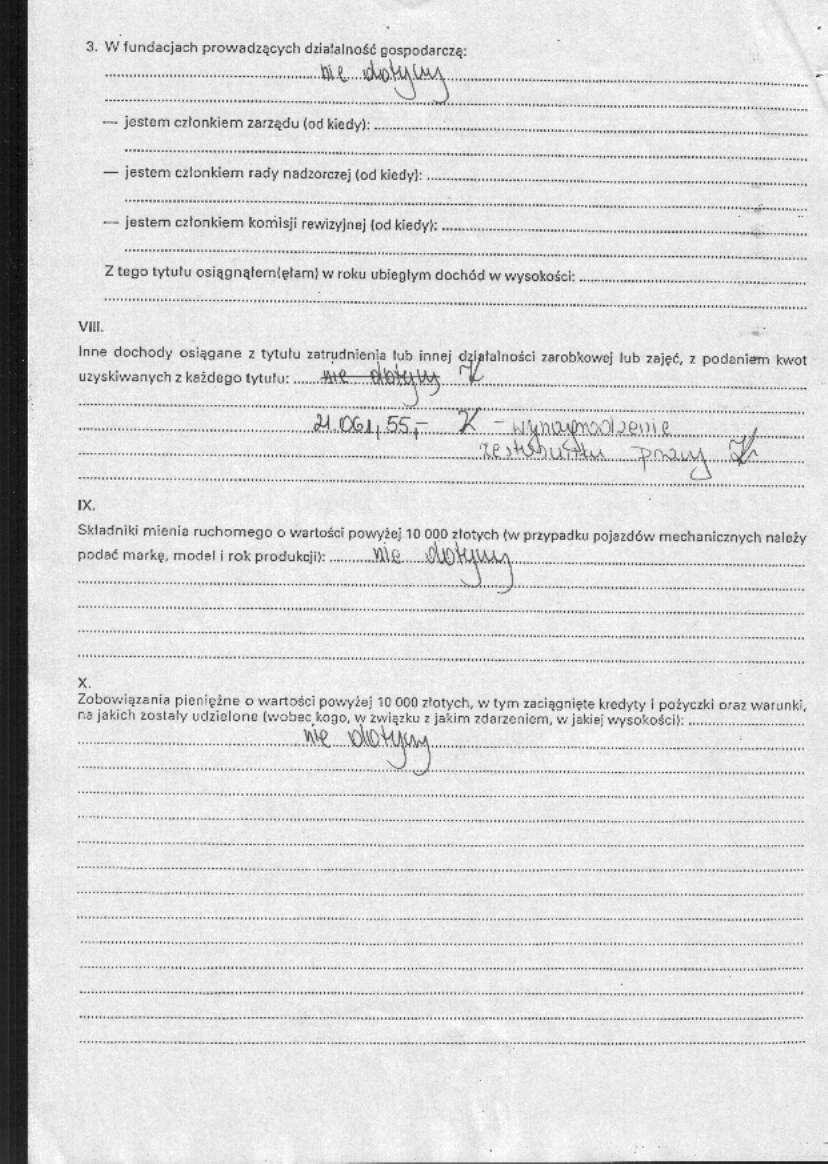 3. W fundacjach prowadzących działalność gospodarczą:
nie dotyczy
— jestem członkiem zarządu (od kiedy):
— jestem członkiem rady nadzorczej (od kiedy):
— jestem członkiem komisji rewizyjnej (od kiedy):
Z tego tytułu osiągnąłem(ęłam) w roku ubiegłym dochód w wysokości:
VIII.
Inne dochody osiągane z tytułu zatrudnienia lub innej działalności zarobkowej lub zajęć, z podaniem kwot
uzyskiwanych z każdego tytułu: nie dotyczy
21.061,55,- – wynagrodzenie
ze stosunku pracy
IX.
Składniki mienia ruchomego o wartości powyżej 10 000 złotych (w przypadku pojazdów mechanicznych należy
podać markę, model i rok produkcji): nie dotyczy
X.
Zobowiązania pieniężne o wartości powyżej 10 000 złotych, w tym zaciągnięte kredyty i pożyczki oraz warunki,
na jakich zostały udzielone (wobec kogo, w związku z jakim zdarzeniem, w jakiej wysokości):
nie dotyczy